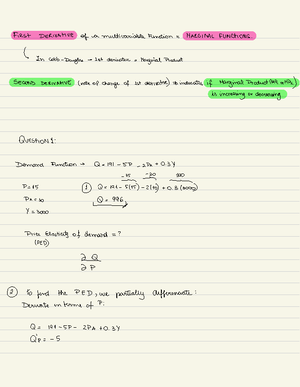 FIRST DERIVATIVE of a multivariable function = MARGINAL FUNCTIONS.
In Cobb-Douglas → 1st derivative = Marginal Product
SECOND DERIVATIVE (rate of change of 1st derivative) → indicates if Marginal Product
is increasing or decreasing
QUESTION 1:
Demand Function → Q = 191 - 5P - 2Pa + 0.3Y
P = 15
① Q = 191 - 5(15) - 2(10) + 0.3(3000)
Pa = 10
Q = 996
Y = 3000
Price Elasticity of demand = ?
(PED)
∂Q
∂P
② To find the PED, we partially differentiate:
Derivate in terms of P.
Q = 191 - 5P - 2Pa + 0.3Y
Q'P = -5